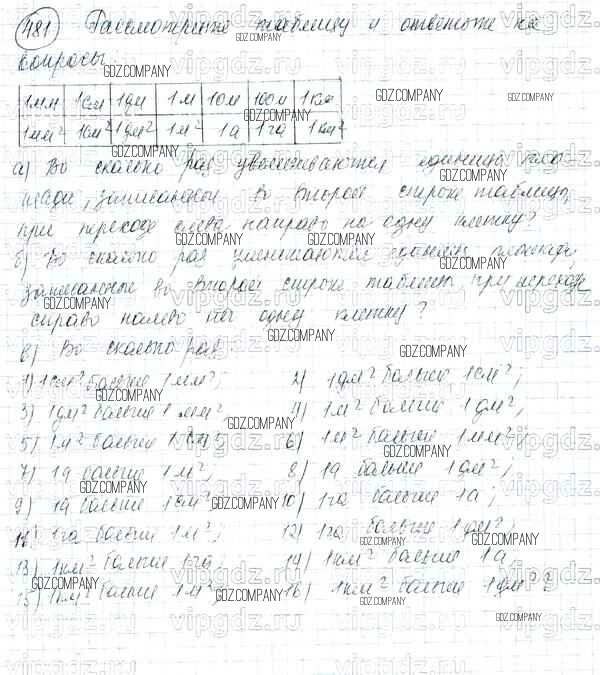 481 Рассмотрите таблицу и ответьте на
вопросы
1мм 1см 1дм 1м 10м 100м 1км
1мм² 1см² 1дм² 1м² 1а 1га 1км²
а) Во сколько раз увеличиваются единицы пло
щади, записанной во второй строке таблицы,
при переходе слева направо на одну клетку?
б) Во сколько раз уменьшаются единицы площади,
записанные во второй строке таблицы при переходе
справо налево на одну клетку?
в) Во сколько раз
1) 1см² больше 1мм²; 2) 1дм² больше 1см²;
3) 1дм² больше 1мм² 4) 1м² больше 1дм²,
5) 1м² больше 1см² 6) 1м² больше 1мм²;
7) 1а больше 1м²; 8) 1а больше 1дм²;
9) 1а больше 1см² 10) 1га больше 1а;
11) 1га больше 1м²; 12) 1га больше 1дм²;
13) 1км² больше 1га, 14) 1км² больше 1а
15) 1км² больше 1м² 16) 1км² больше 1дм²?
GDZ.COMPANY
vipgdz.ru